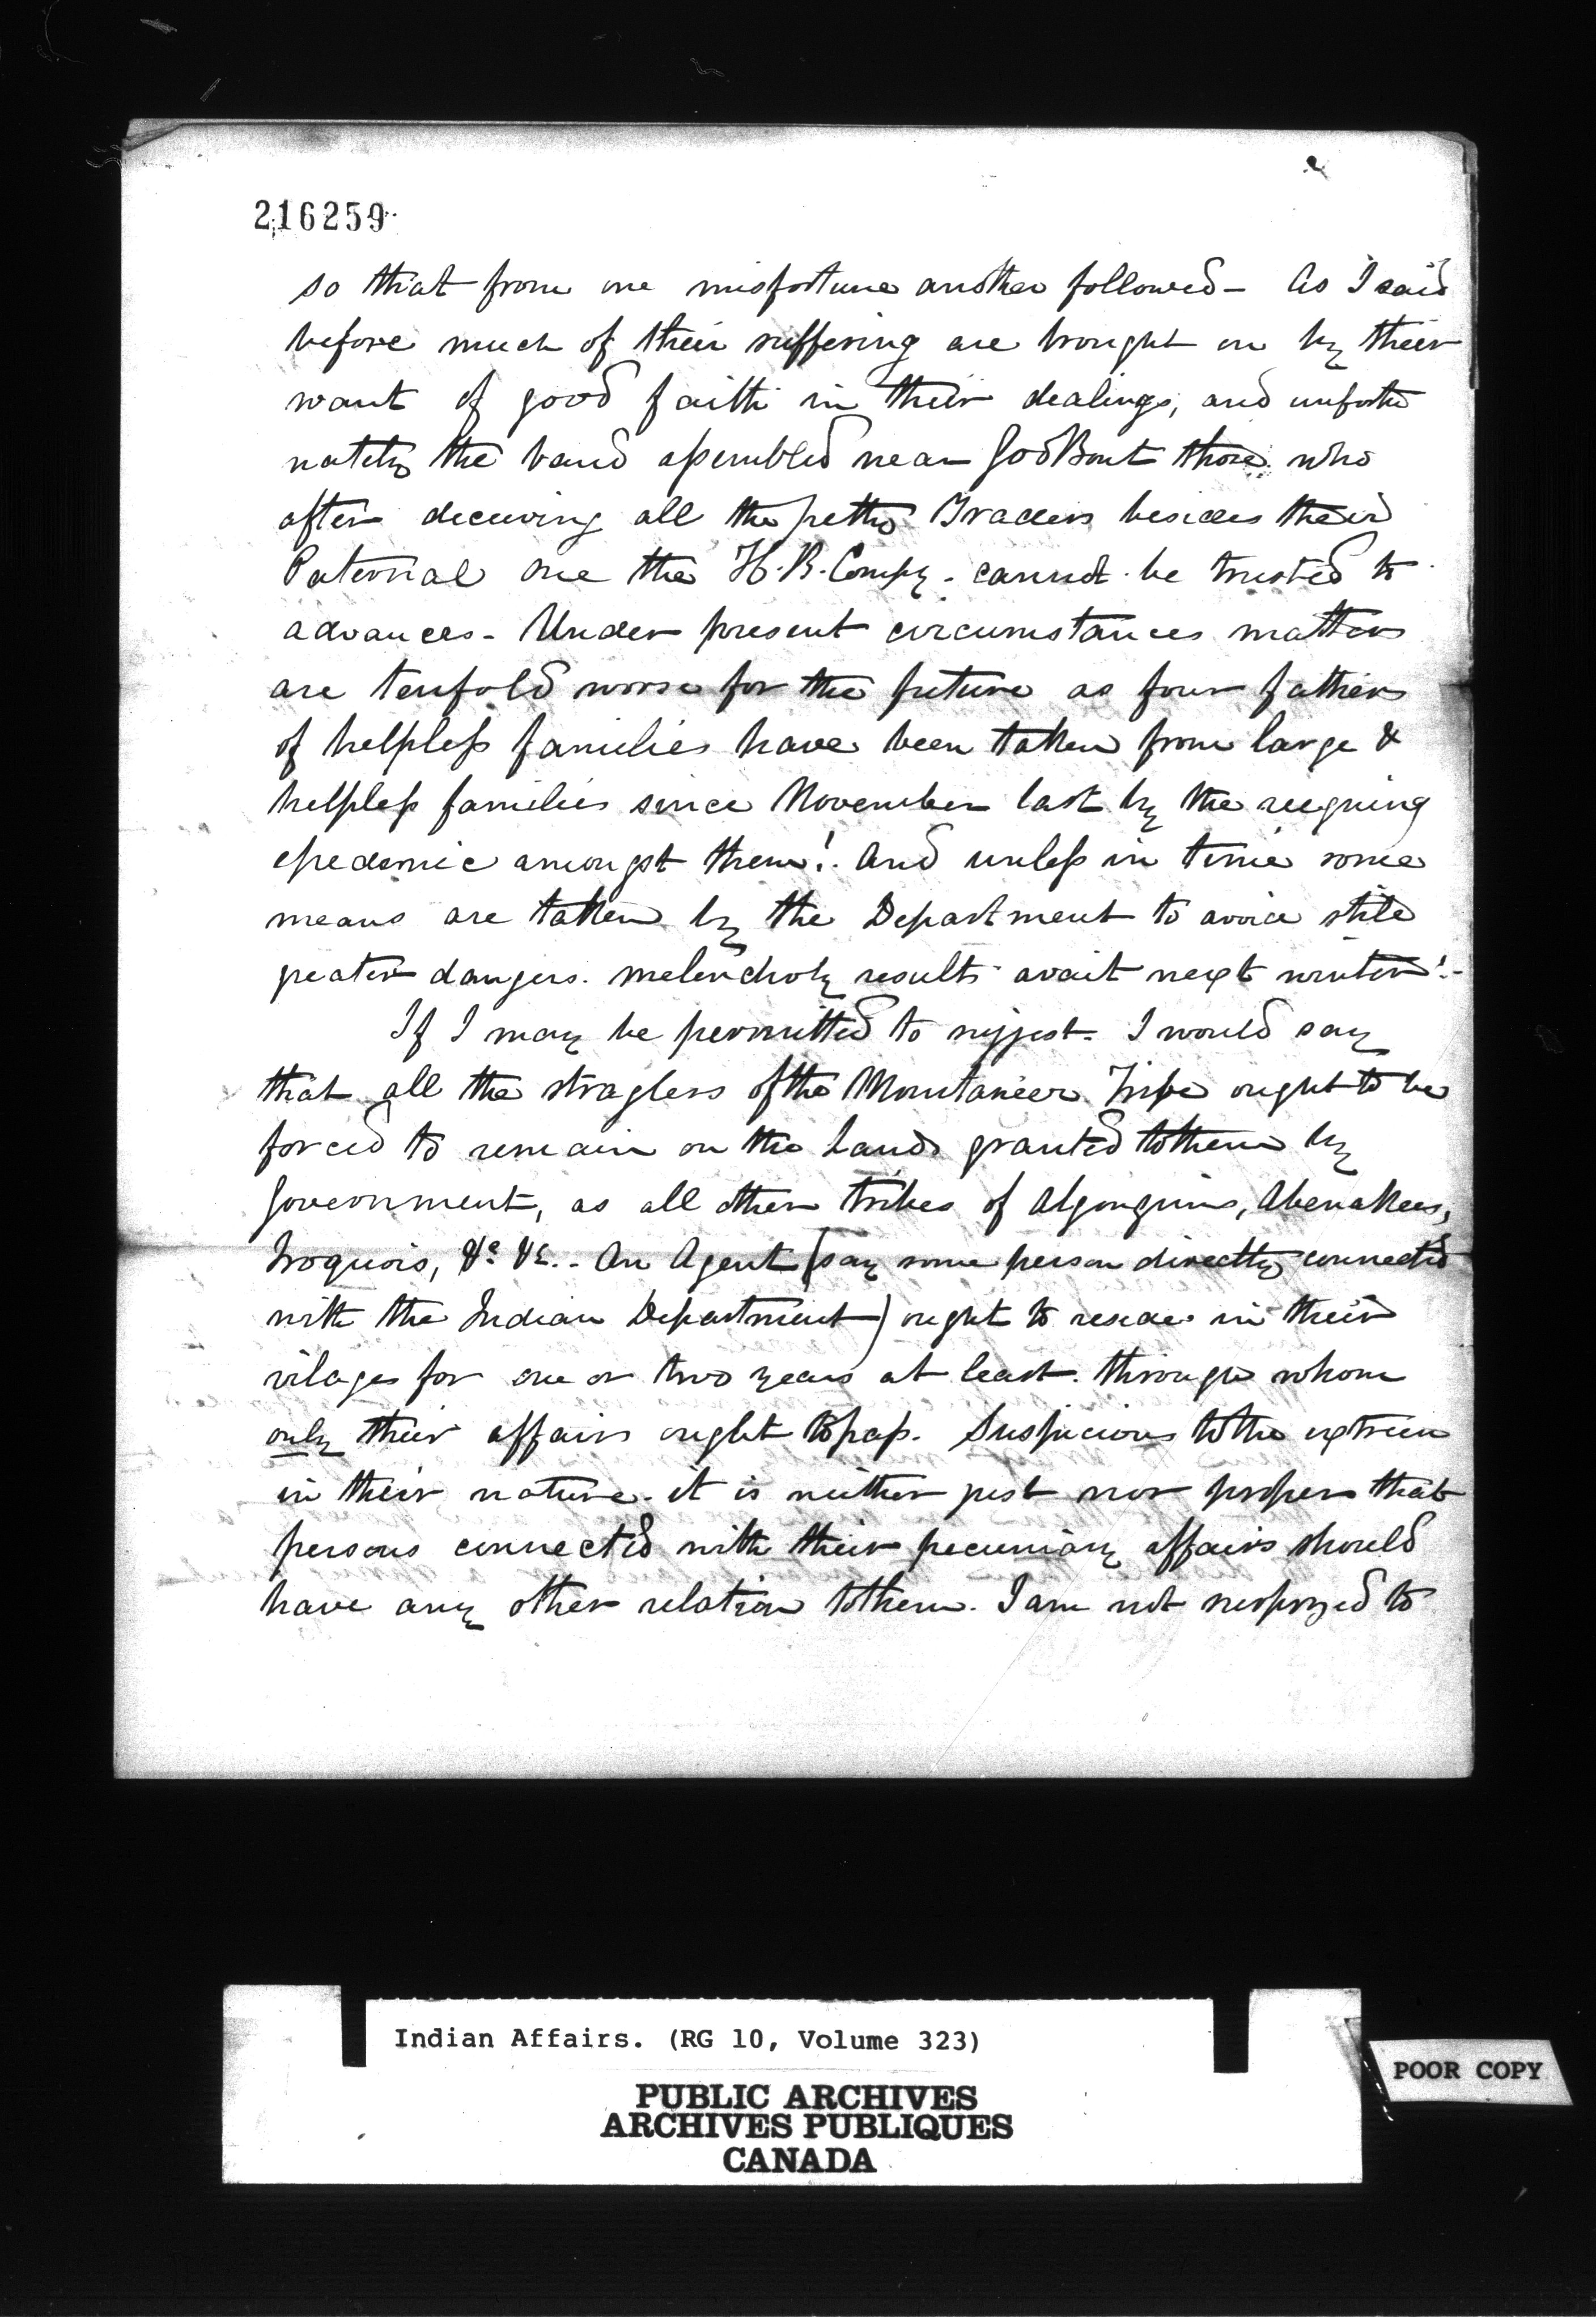 216259
so that from one misfortune another followed - As I said
before much of their suffering are brought on by their
want of good faith in their dealings, and unfortu
nately the band assembled near GodBout those who
after deceiving all the petty Traders besides their
Paternal one the H. B. Compy. cannot be trusted to
advances - Under present circumstances matters
are tenfold worse for the future as four fathers
of helpless families have been taken from large &
helpless families since November last by the reigning
epedemic amongst them! And unless in time some
means are taken by the Department to avoid still
greater dangers. melencholy results await next winter! -
If I may be permitted to suggest - I would say
that all the straglers of the Mountaneer Tribe ought to be
forced to remain on the Lands granted to them by
Government, as all other tribes of Algonquins, Abenakees,
Iroquois, &c. &c. - An Agent (say some person directly connected
with the Indian Department) ought to reside in their
vilages for one or two years at least. through whom
only their affairs ought to pass. Suspicious to the extreme
in their nature. it is neither just nor proper that
persons connected with their pecuniary affairs should
have any other relation to them. I am not surprized to
Indian Affairs. (RG 10, Volume 323)
PUBLIC ARCHIVES
ARCHIVES PUBLIQUES
CANADA
POOR COPY